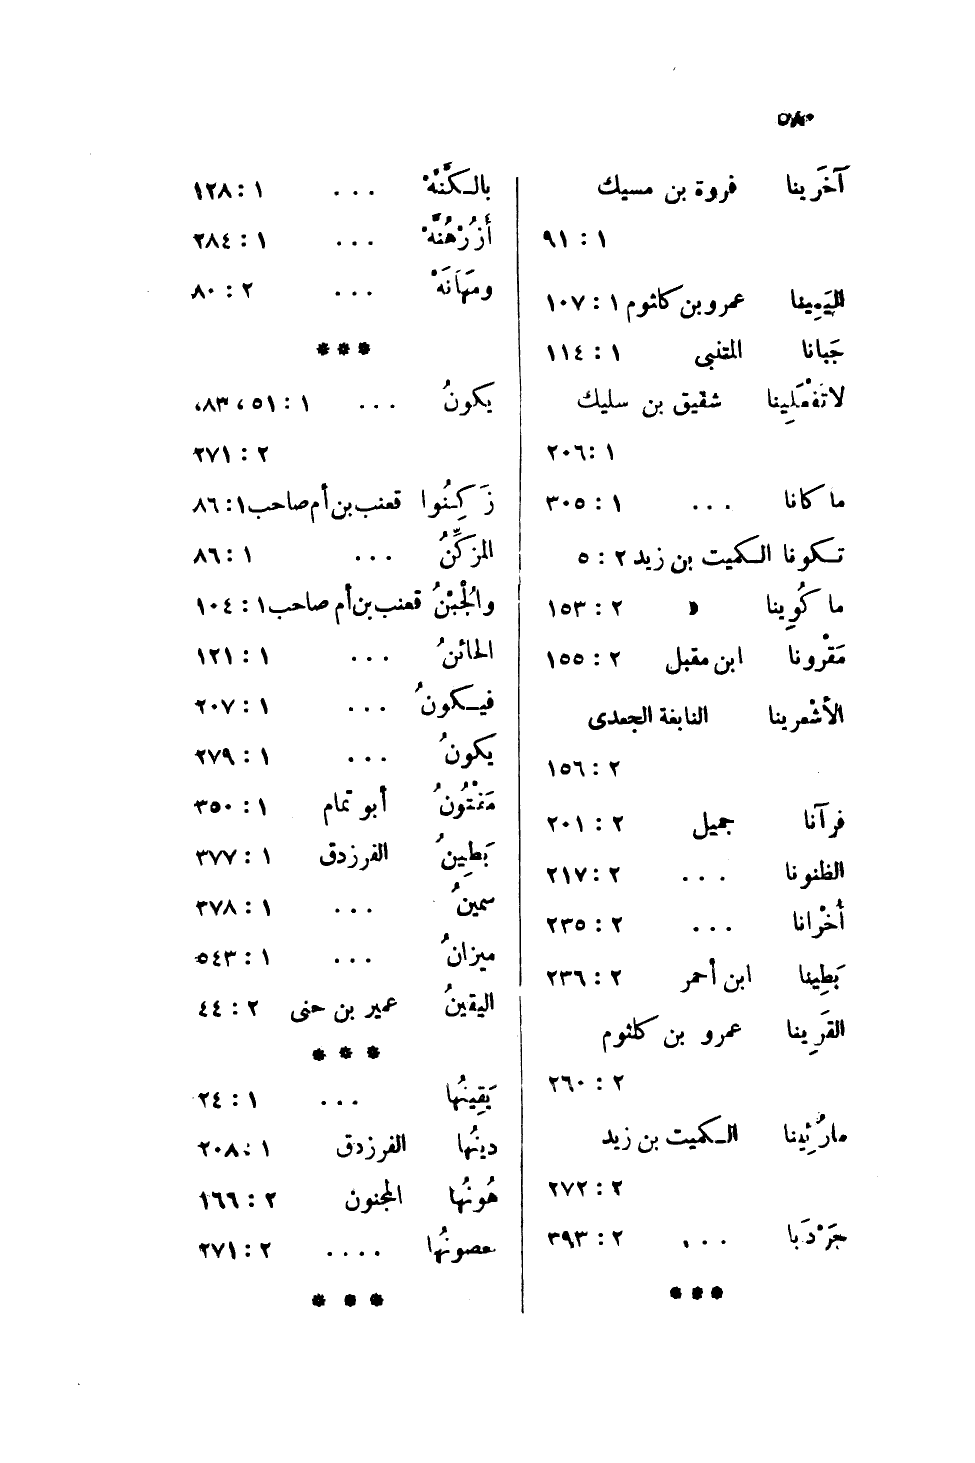 ٥٨٠
آخَرِينا فروة بن مسيك
١ : ٩١
اليَمِينا عمرو بن كلثوم ١ : ١٠٧
جَبانا المتنبى ١ : ١١٤
لا تَفْعَلِينا شقيق بن سليك
١ : ٢٠٦
ما كانا ... ١ : ٣٠٥
تـكونا الـكميت بن زيد ٢ : ٥
ما كُوِينا » ٢ : ١٥٣
مَقْرونا ابن مقبل ٢ : ١٥٥
الأشْعرينا النابغة الجعدى
٢ : ١٥٦
فرآنا جميل ٢ : ٢٠١
الظنونا ... ٢ : ٢١٧
أخْرانا ... ٢ : ٢٣٥
بَطِينا ابن أحمر ٢ : ٢٣٦
القَرِينا عمرو بن كلثوم
٢ : ٢٦٠
مارُئِينا الـكميت بن زيد
٢ : ٢٧٢
جَرْدَبا ... ٢ : ٣٩٣
***
بالـكَنَّهْ ... ١ : ١٢٨
أزُرْهُنَّهْ ... ١ : ٢٨٤
ومَهَانَهْ ... ٢ : ٨٠
***
يكونُ ... ١ : ٥١ ، ٨٣ ،
٢ : ٢٧١
زَكِنُوا قعنب بن أم صاحب ١ : ٨٦
المزكِّنُ ... ١ : ٨٦
والجُبْنُ قعنب بن أم صاحب ١ : ١٠٤
الحائنُ ... ١ : ١٢١
فيـكونُ ... ١ : ٢٠٧
يكونُ ... ١ : ٢٧٩
مَمْتُونُ أبو تمام ١ : ٣٥٠
بَطِينُ الفرزدق ١ : ٣٧٧
سمينُ ... ١ : ٣٧٨
ميزانُ ... ١ : ٥٤٣
اليقينُ عمير بن حنى ٢ : ٤٤
***
يَقِينُها ... ١ : ٢٤
دينُها الفرزدق ١ : ٢٠٨
هُونُها المجنون ٢ : ١٦٦
عصونُها .... ٢ : ٢٧١
***